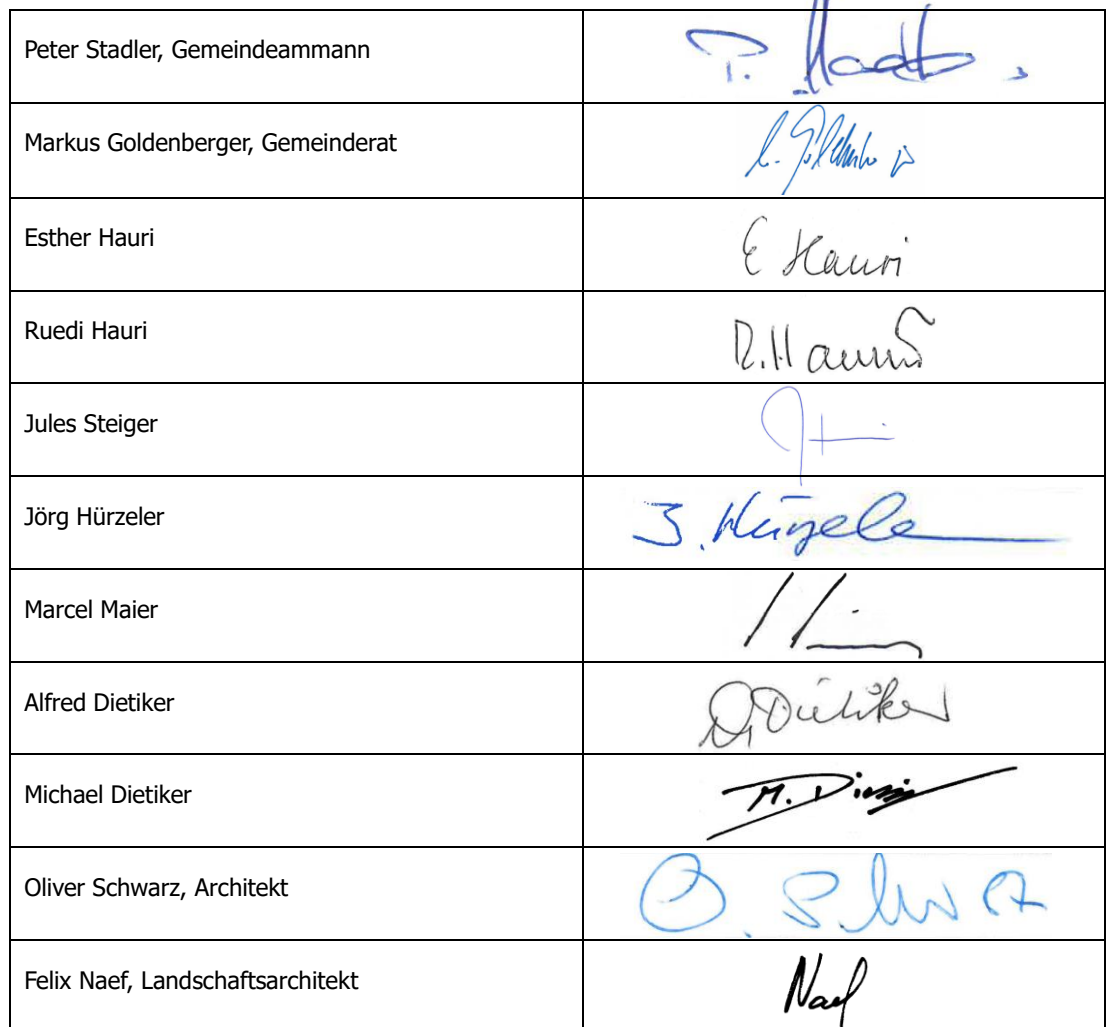 Peter Stadler, Gemeindeammann
Markus Goldenberger, Gemeinderat
Esther Hauri
E Hauri
Ruedi Hauri
R. Hauri
Jules Steiger
Jörg Hürzeler
J. Hürzeler
Marcel Maier
Alfred Dietiker
A. Dietiker
Michael Dietiker
M.
Oliver Schwarz, Architekt
O. Schwarz
Felix Naef, Landschaftsarchitekt
Naef